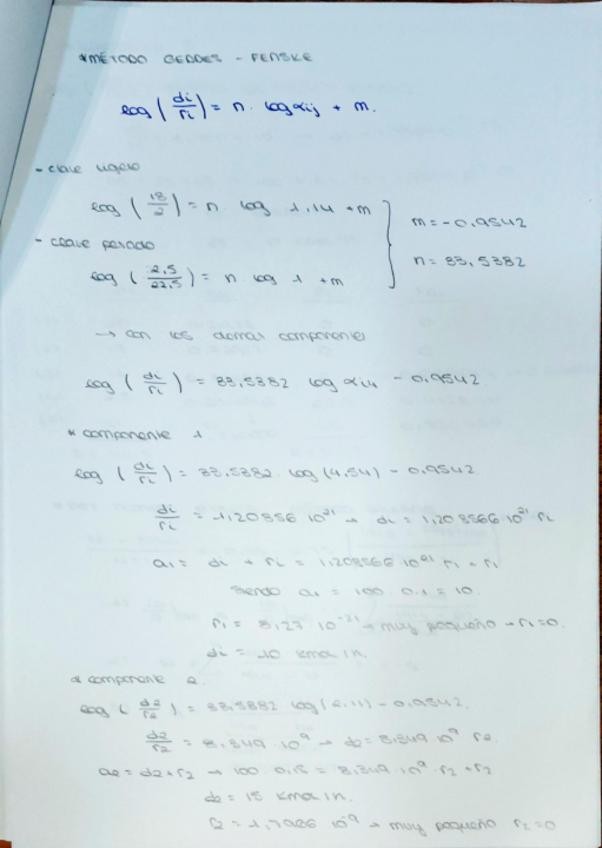 *MÉTODO GEDDES - FENSKE
log (di/ri) = n · log αij + m.
- clave ligero
log (18/2) = n · log 1,14 + m
m = -0,9542
- clave pesado
n = 33,5382
log (2,5/22,5) = n log 1 + m
→ con los demás componentes
log (di/ri) = 33,5382 log αi4 - 0,9542
* componente 1
log (di/ri) = 33,5382 · log (4,54) - 0,9542
di/ri = 1,20856 10²¹ → di = 1,208566 10²¹ ri
a1 = di + ri = 1,208566 10²¹ r1 + r1
siendo a1 = 100 · 0.1 = 10.
r1 = 8,27 10⁻²¹ → muy pequeño → r1 = 0.
di = 10 kmol/h.
* componente 2.
log (d2/r2) = 33,5382 log ( ) - 0,9542.
d2/r2 = 8,349 · 10⁹ → d2 = 8,349 10⁹ r2.
a2 = d2 + r2 → 100 · 0,15 = 8,349 · 10⁹ · r2 + r2
d2 = 15 kmol/h.
r2 = 1,7966 10⁻⁹ → muy pequeño r2 = 0